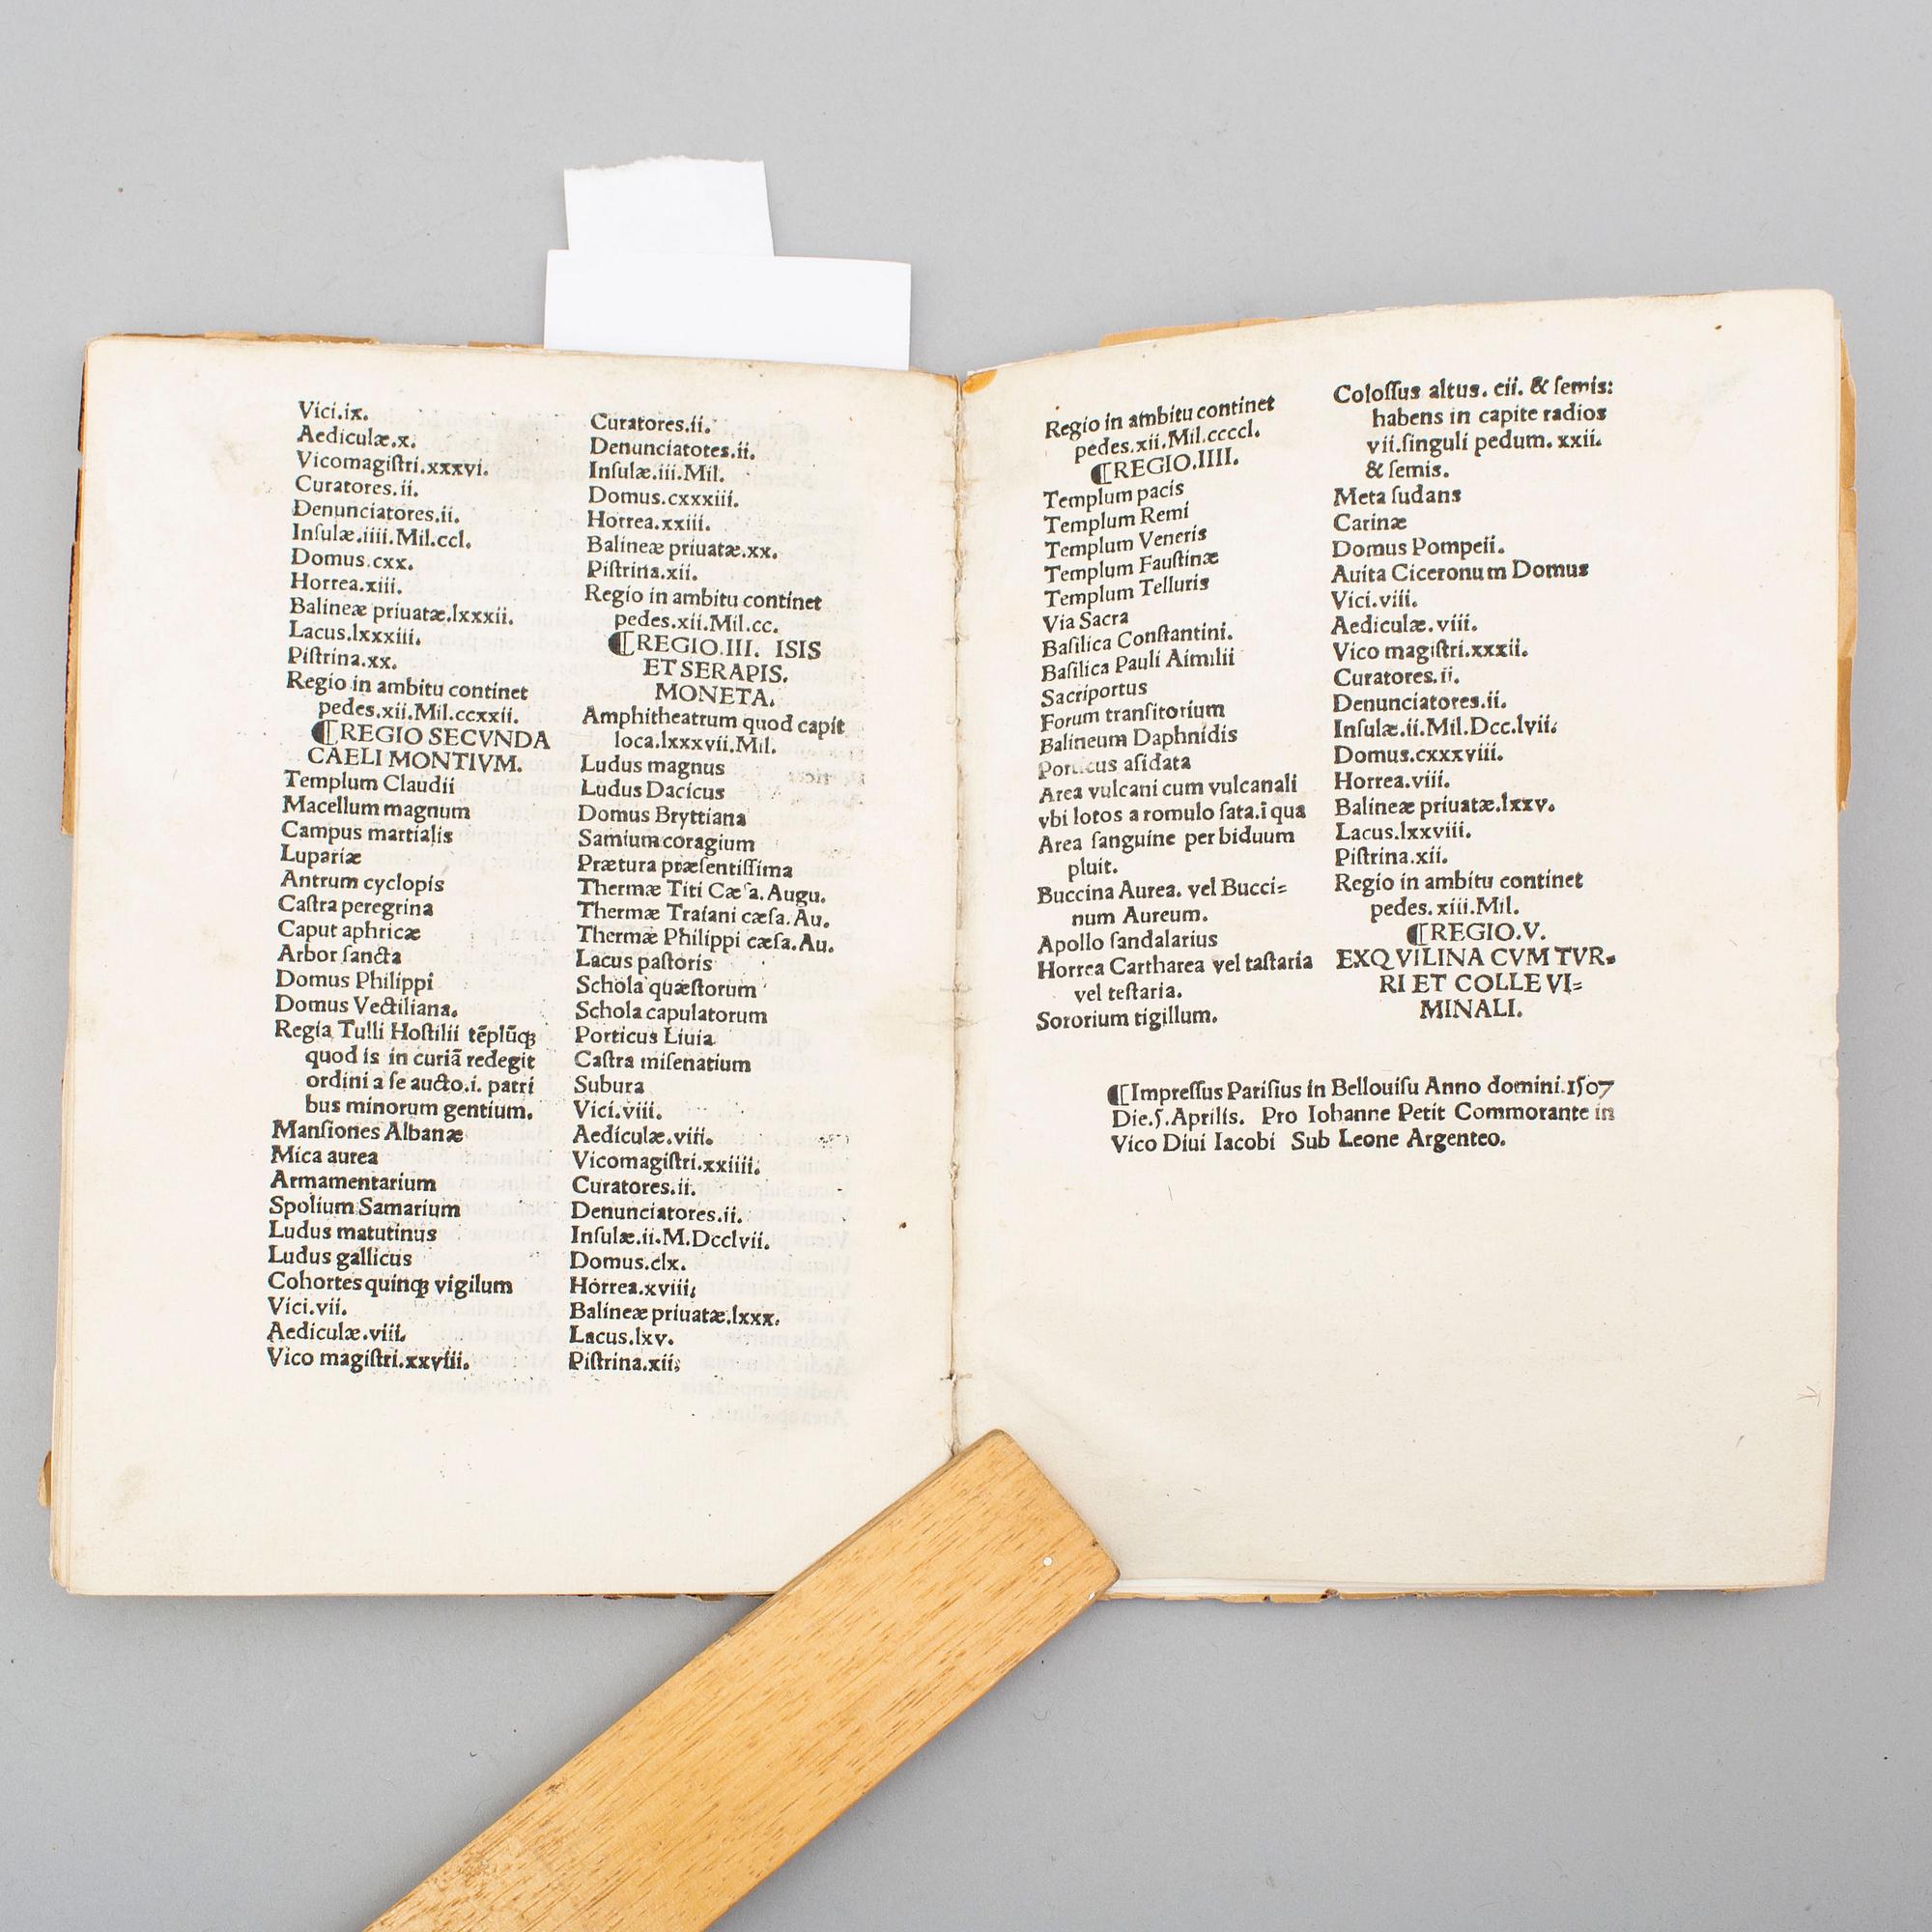 Vici.ix.
Aediculæ.x.
Vicomagiſtri.xxxvi.
Curatores.ii.
Denunciatores.ii.
Inſulæ.iiii.Mil.ccl.
Domus.cxx.
Horrea.xiii.
Balineæ priuatæ.lxxxii.
Lacus.lxxxiii.
Piſtrina.xx.
Regio in ambitu continet
pedes.xii.Mil.ccxxii.
⸿REGIO SECVNDA
CAELI MONTIVM.
Templum Claudii
Macellum magnum
Campus martialis
Lupariæ
Antrum cyclopis
Caſtra peregrina
Caput aphricæ
Arbor ſancta
Domus Philippi
Domus Vectiliana.
Regia Tulli Hoſtilii tẽplũqꝫ
quod is in curiã redegit
ordini a ſe aucto.i. patri
bus minorum gentium.
Manſiones Albanæ
Mica aurea
Armamentarium
Spolium Samarium
Ludus matutinus
Ludus gallicus
Cohortes quinqꝫ vigilum
Vici.vii.
Aediculæ.viii.
Vico magiſtri.xxviii.
Curatores.ii.
Denunciatotes.ii.
Inſulæ.iii.Mil.
Domus.cxxxiii.
Horrea.xxiii.
Balineæ priuatæ.xx.
Piſtrina.xii.
Regio in ambitu continet
pedes.xii.Mil.cc.
⸿REGIO.III. ISIS
ET SERAPIS.
MONETA.
Amphitheatrum quod capit
loca.lxxxvii.Mil.
Ludus magnus
Ludus Dacicus
Domus Bryttiana
Samium coragium
Prætura præſentiſſima
Thermæ Titi Cæſa. Augu.
Thermæ Traiani cæſa. Au.
Thermæ Philippi cæſa. Au.
Lacus paſtoris
Schola quæſtorum
Schola capulatorum
Porticus Liuia
Caſtra miſenatium
Subura
Vici.viii.
Aediculæ.viii.
Vicomagiſtri.xxiiii.
Curatores.ii.
Denunciatores.ii.
Inſulæ.ii.M.Dcclvii.
Domus.clx.
Horrea.xviii.
Balineæ priuatæ.lxxx.
Lacus.lxv.
Piſtrina.xii.
Regio in ambitu continet
pedes.xii.Mil.ccccl.
⸿REGIO.IIII.
Templum pacis
Templum Remi
Templum Veneris
Templum Fauſtinæ
Templum Telluris
Via Sacra
Baſilica Conſtantini.
Baſilica Pauli Aimilii
Sacriportus
Forum tranſitorium
Balineum Daphnidis
Porticus aſidata
Area vulcani cum vulcanali
vbi lotos a romulo ſata.ĩ qua
Area ſanguine per biduum
pluit.
Buccina Aurea. vel Bucci=
num Aureum.
Apollo ſandalarius
Horrea Cartharea vel taſtaria
vel teſtaria.
Sororium tigillum.
Coloſſus altus. cii. & ſemis:
habens in capite radios
vii.ſinguli pedum. xxii.
& ſemis.
Meta ſudans
Carinæ
Domus Pompeii.
Auita Ciceronum Domus
Vici.viii.
Aediculæ.viii.
Vico magiſtri.xxxii.
Curatores.ii.
Denunciatores.ii.
Inſulæ.ii.Mil.Dcc.lvii.
Domus.cxxxviii.
Horrea.viii.
Balineæ priuatæ.lxxv.
Lacus.lxxviii.
Piſtrina.xii.
Regio in ambitu continet
pedes. xiii.Mil.
⸿REGIO.V.
EXQVILINA CVM TVR=
RI ET COLLE VI=
MINALI.
⸿Impreſſus Pariſius in Bellouiſu Anno domini.1507
Die.5.Aprilis. Pro Iohanne Petit Commorante in
Vico Diui Iacobi Sub Leone Argenteo.